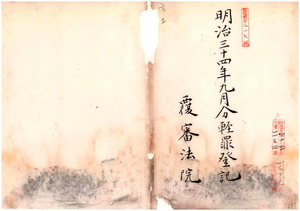 明治三十四年九月分輕罪登記
覆審法院